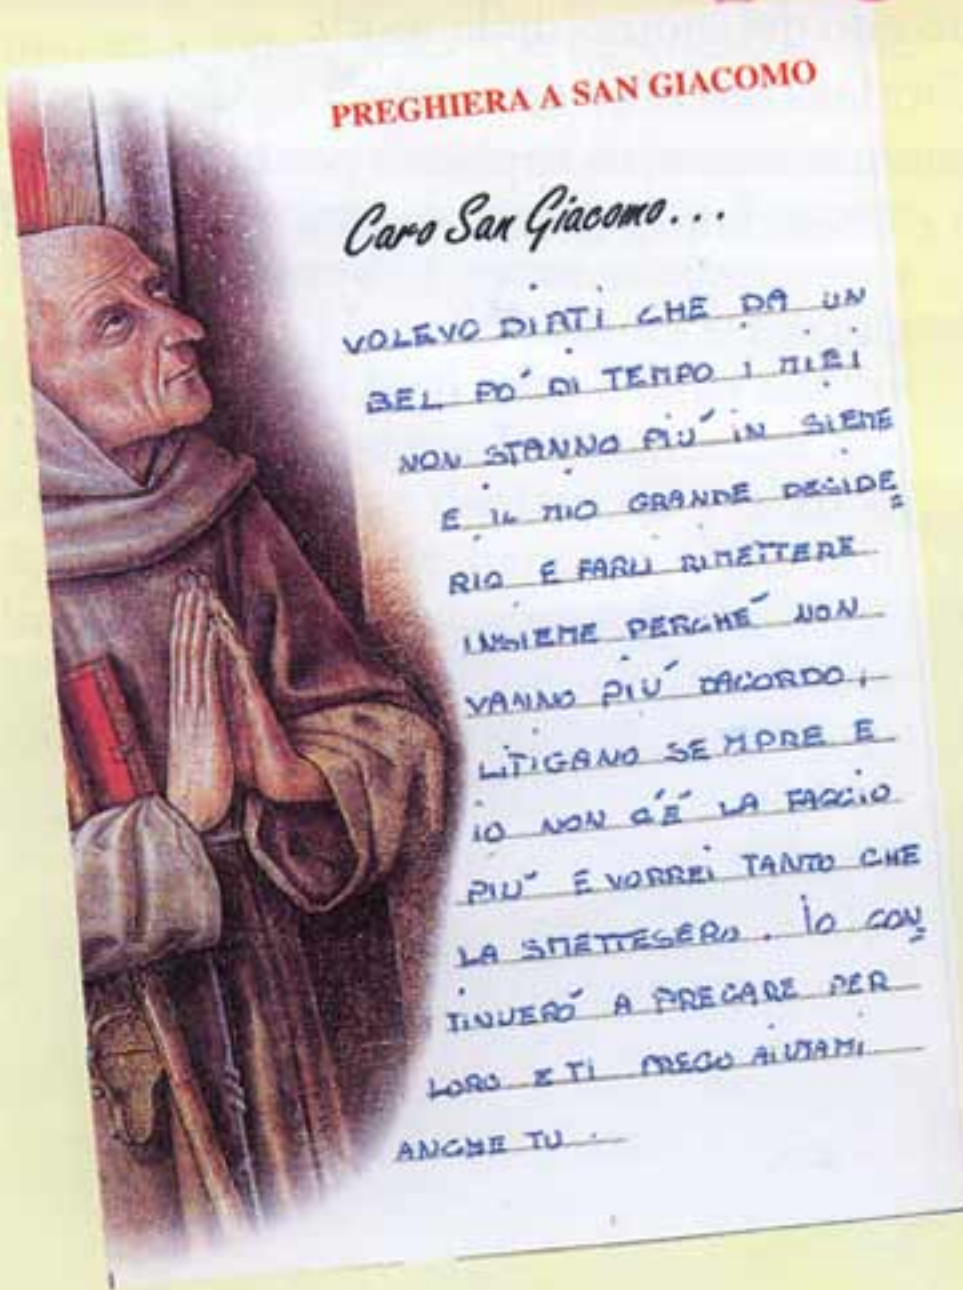 PREGHIERA A SAN GIACOMO
Caro San Giacomo...
VOLEVO DIRTI CHE DA UN
BEL PO' DI TEMPO I MIEI
NON STANNO PIU' IN SIEME
E IL MIO GRANDE DESIDE=
RIO E FARLI RIMETTERE
INSIEME PERCHE' NON
VANNO PIU' DACORDO,
LITIGANO SEMPRE E
IO NON C'E' LA FACCIO
PIU' E VORREI TANTO CHE
LA SMETTESERO. IO CON=
TINUERO' A PREGARE PER
LORO E TI PREGO AIUTAMI
ANCHE TU.